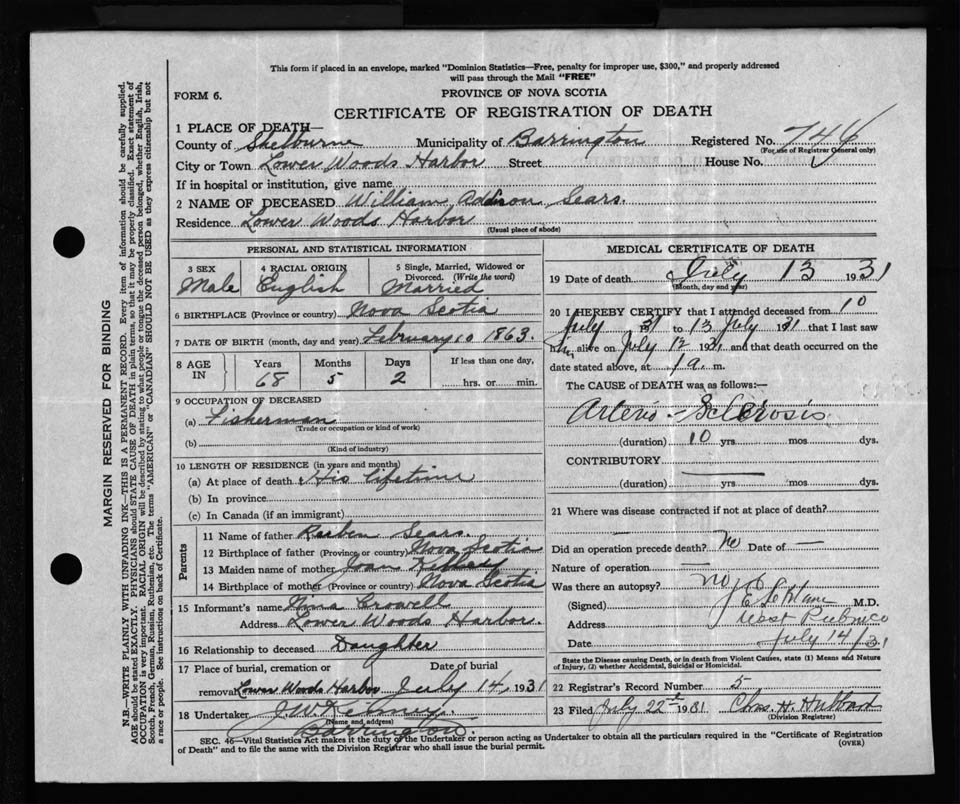 This form if placed in an envelope, marked "Dominion Statistics—Free, penalty for improper use, $300," and properly addressed
will pass through the Mail "FREE"
FORM 6.
PROVINCE OF NOVA SCOTIA
CERTIFICATE OF REGISTRATION OF DEATH
1 PLACE OF DEATH—
County of Shelburne Municipality of Barrington Registered No. 746
(For use of Registrar General only)
City or Town Lower Woods Harbor Street House No.
If in hospital or institution, give name
2 NAME OF DECEASED William Addison Sears.
Residence Lower Woods Harbor
(Usual place of abode)
PERSONAL AND STATISTICAL INFORMATION
3 SEX 4 RACIAL ORIGIN 5 Single, Married, Widowed or
Divorced. (Write the word)
Male English Married
6 BIRTHPLACE (Province or country) Nova Scotia
7 DATE OF BIRTH (month, day and year) February 10 1863.
8 AGE IN Years Months Days If less than one day,
68 5 2 hrs. or min.
9 OCCUPATION OF DECEASED
(a) Fisherman
(Trade or occupation or kind of work)
(b)
(Kind of industry)
10 LENGTH OF RESIDENCE (in years and months)
(a) At place of death His lifetime
(b) In province
(c) In Canada (if an immigrant)
Parents
11 Name of father Reuben Sears.
12 Birthplace of father (Province or country) Nova Scotia
13 Maiden name of mother Joan
14 Birthplace of mother (Province or country) Nova Scotia
15 Informant's name Nina Crowell
Address Lower Woods Harbor.
16 Relationship to deceased Daughter
17 Place of burial, cremation or Date of burial
removal Lower Woods Harbor July 14, 1931
18 Undertaker J.W. Kenney.
(Name and address)
Barrington.
MEDICAL CERTIFICATE OF DEATH
19 Date of death July 13 1931
(Month, day and year)
20 I HEREBY CERTIFY that I attended deceased from 10
July 31 to 13 July 1931 that I last saw
him alive on July 12 1931 and that death occurred on the
date stated above, at 1 a. m.
The CAUSE of DEATH was as follows:—
Arterio-Sclerosis
(duration) 10 yrs. mos. dys.
CONTRIBUTORY —
(duration) — yrs. mos. dys.
21 Where was disease contracted if not at place of death?
Did an operation precede death? No Date of —
Nature of operation —
Was there an autopsy? no
(Signed) LeBlanc M.D.
Address West Pubnico
Date July 14/31
State the Disease causing Death, or in death from Violent Causes, state (1) Means and Nature
of Injury, (2) whether Accidental, Suicidal or Homicidal.
22 Registrar's Record Number 5
23 Filed July 22d 1931 Chas. H. Hubbard
(Division Registrar)
SEC. 46—Vital Statistics Act makes it the duty of the Undertaker or person acting as Undertaker to obtain all the particulars required in the "Certificate of Registration
of Death" and to file the same with the Division Registrar who shall issue the burial permit.
(OVER)
MARGIN RESERVED FOR BINDING
N.B.—WRITE PLAINLY WITH UNFADING INK—THIS IS A PERMANENT RECORD. Every item of information should be carefully supplied.
AGE should be stated EXACTLY. PHYSICIANS should STATE CAUSE OF DEATH in plain terms, so that it may be properly classified. Exact statement of
OCCUPATION is very important. RACIAL ORIGIN will be described by stating to what people or tongue the deceased person belonged, whether English, Irish,
Scotch, French, German, Russian, Ruthenian, etc. The terms "AMERICAN" or "CANADIAN" SHOULD NOT BE USED as they express citizenship but not
a race or people. See instructions on back of Certificate.